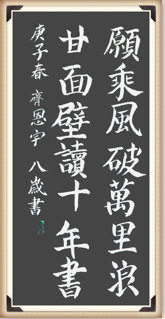 願乘風破萬里浪
甘面壁讀十年書
庚子春 齊恩宇 八歲書